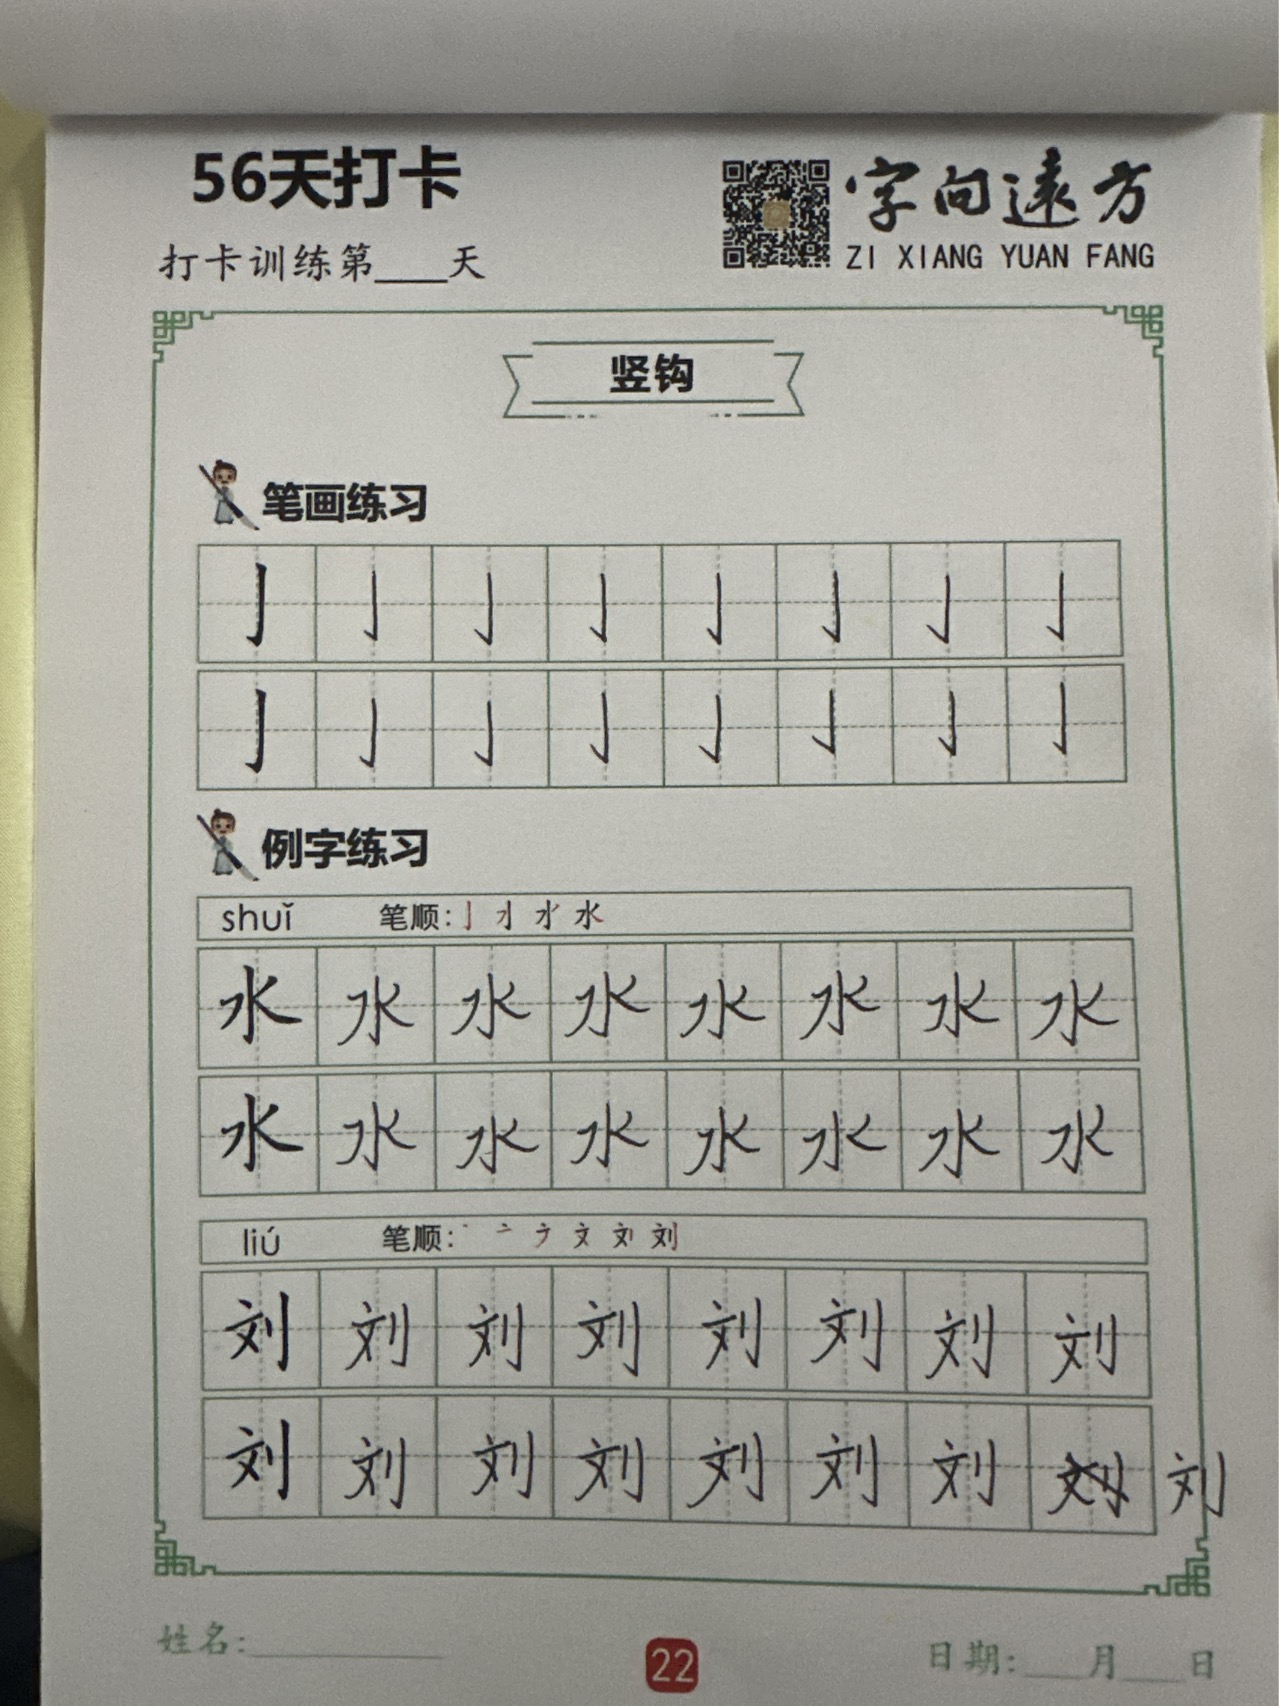 56天打卡
字向远方
ZI XIANG YUAN FANG
打卡训练第____天
竖钩
笔画练习
亅 亅 亅 亅 亅 亅 亅 亅
亅 亅 亅 亅 亅 亅 亅 亅
例字练习
shuǐ 笔顺: 水
水 水 水 水 水 水 水 水
水 水 水 水 水 水 水 水
liú 笔顺: 丶 亠 文 刘
刘 刘 刘 刘 刘 刘 刘 刘
刘 刘 刘 刘 刘 刘 刘 刘
姓名:__________
22
日期:____月____日